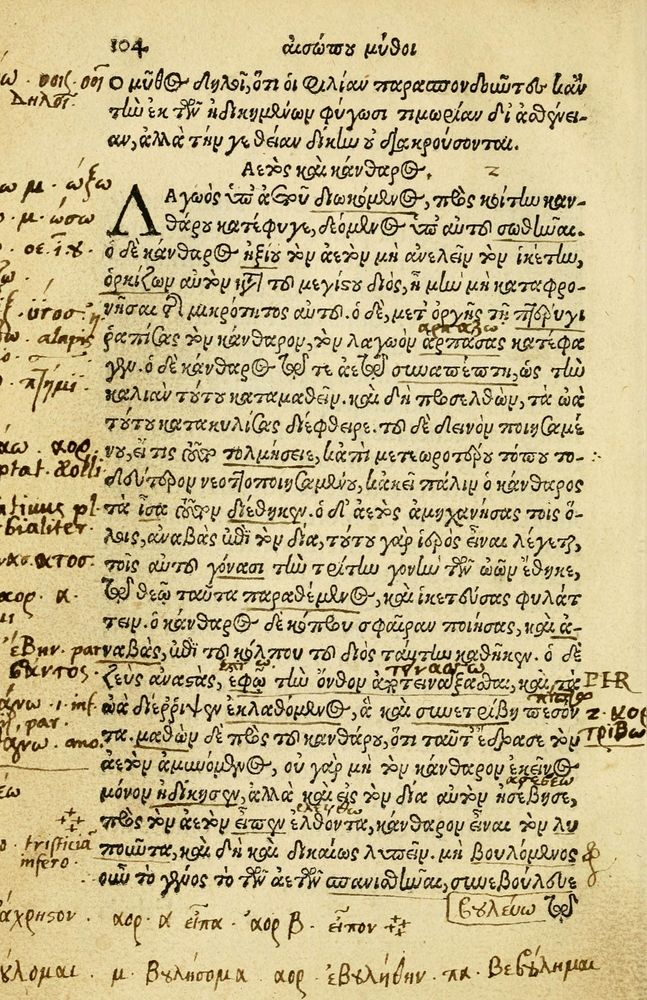 104 αἰσώπου μῦθοι
Ο μῦθος δηλοῖ, ὅτι οἱ φιλίαν παρασπονδοῦντες κἂν
τὴν ἐκ τῶν ἠδικημένων φύγωσι τιμωρίαν δι' ἀσθένει-
αν, ἀλλὰ τήν γε θείαν δίκην οὐ διακρούσονται.
Αετὸς καὶ κάνθαρος. 2
ΛΑγωὸς ὑπ' ἀετοῦ διωκόμενος, πρὸς κοίτην καν-
θάρου κατέφυγε, δεόμενος ὑπ' αὐτοῦ σωθῆναι.
ὁ δὲ κάνθαρος ἠξίου τὸν ἀετὸν μὴ ἀνελεῖν τὸν ἱκέτην,
ὁρκίζων αὐτὸν κατὰ τοῦ μεγίστου διὸς, ἦ μὴν μὴ καταφρο-
νῆσαι τῆς μικρότητος αὐτοῦ. ὁ δὲ, μετ' ὀργῆς τῇ πτέρυγι
ῥαπίσας τὸν κάνθαρον, τὸν λαγωὸν ἁρπάσας κατέφα
γεν. ὁ δὲ κάνθαρος τῷ τε ἀετῷ συναπέπτη, ὡς τὴν
καλιὰν τούτου καταμαθεῖν. καὶ δὴ προσελθὼν, τὰ ὠὰ
τούτου κατακυλίσας διέφθειρε. τοῦ δὲ δεινὸν ποιησαμέ
νου, εἴ τις τοῦτο τολμήσειε, κἀπὶ μετεωροτέρου τόπου τὸ
δεύτερον νεοττοποιησαμένου, κἀκεῖ πάλιν ὁ κάνθαρος
τὰ ἴσα τοῦτον διέθηκεν. ὁ δ' ἀετὸς ἀμηχανήσας τοῖς ὅ-
λοις, ἀναβὰς ἐπὶ τὸν δία, τούτου γὰρ ἱερὸς εἶναι λέγεται,
τοῖς αὐτοῦ γόνασι τὴν τρίτην γονὴν τῶν ὠῶν ἔθηκε,
τῷ θεῷ ταῦτα παραθέμενος, καὶ ἱκετεύσας φυλάτ
τειν. ὁ κάνθαρος δὲ κόπρου σφαῖραν ποιήσας, καὶ ἀ-
ναβὰς, ἐπὶ τοῦ κόλπου τοῦ διὸς ταύτην καθῆκεν. ὁ δὲ
ζεὺς ἀναστὰς, ἐφ' ᾧ τὴν ὄνθον ἀποτινάξασθαι, καὶ τὰ
ὠὰ διέρριψεν ἐκλαθόμενος, ἃ καὶ συνετρίβη πεσόν
τα. μαθὼν δὲ πρὸς τοῦ κανθάρου, ὅτι ταῦτ' ἔδρασε τὸν
ἀετὸν ἀμυνόμενος, οὐ γὰρ μὴ τὸν κάνθαρον ἐκεῖνος
μόνον ἠδίκησεν, ἀλλὰ καὶ εἰς τὸν δία αὐτὸν ἠσέβησε,
πρὸς τὸν ἀετὸν εἶπεν ἐλθόντα, κάνθαρον εἶναι τὸν λυ
ποῦντα, καὶ δὴ καὶ δικαίως λυπεῖν. μὴ βουλόμενος
οὖν τὸ γένος τὸ τῶν ἀετῶν σπανισθῆναι, συνεβούλευε
βουλεύω τῷ
ἀορ. α εἶπα. ἀορ β. εἶπον
μ. βουλήσομαι ἀορ. ἐβουλήθην. πα. βεβούλημαι